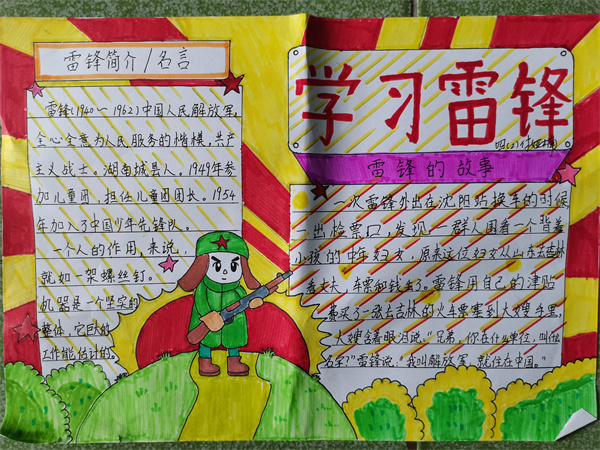 雷锋简介/名言
雷锋(1940~1962)中国人民解放军,
全心全意为人民服务的楷模,共产
主义战士。湖南城县人。1949年参
加儿童团,担任儿童团团长。1954
年加入了中国少年先锋队。
一个人的作用,来说,
就如一架螺丝钉。
机器是一个坚定的
整体,它巨大的
工作能估计的。
学习雷锋
雷锋的故事
一次雷锋外出在沈阳站换车的时候
一出检票口,发现一群人围着一个背着
小孩的中年妇女,原来这位妇女从山东去吉林
看丈夫,车票和钱丢了。雷锋用自己的津贴
费买了一张去吉林的火车票塞到大嫂手里,
大嫂含着眼泪说:“兄弟,你在什么单位,叫什么
名字?”雷锋说:“我叫解放军,就住在中国。”